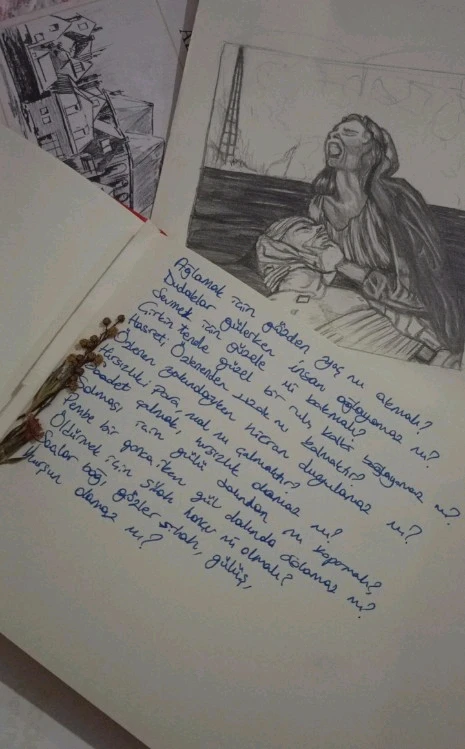 Ağlamak için gözden yaş mı akmalı?
Dudaklar gülerken insan ağlayamaz mı?
Sevmek için güzele mi bakmalı?
Çirkin tende güzel bir ruh, kalbi bağlayamaz mı?
Hasret; özlenenden uzak mı kalmaktır?
Özlenen yakındayken hicran duyulamaz mı?
Hırsızlık; para, mal mı çalmaktır?
Saadet çalmak, hırsızlık olamaz mı?
Solması için gülü dalından mı koparmalı?
Pembe bir gonca iken gül dalında solamaz mı?
Öldürmek için silah, hançer mi olmalı?
Saçlar bağ, gözler silah, gülüş,
kurşun olamaz mı?